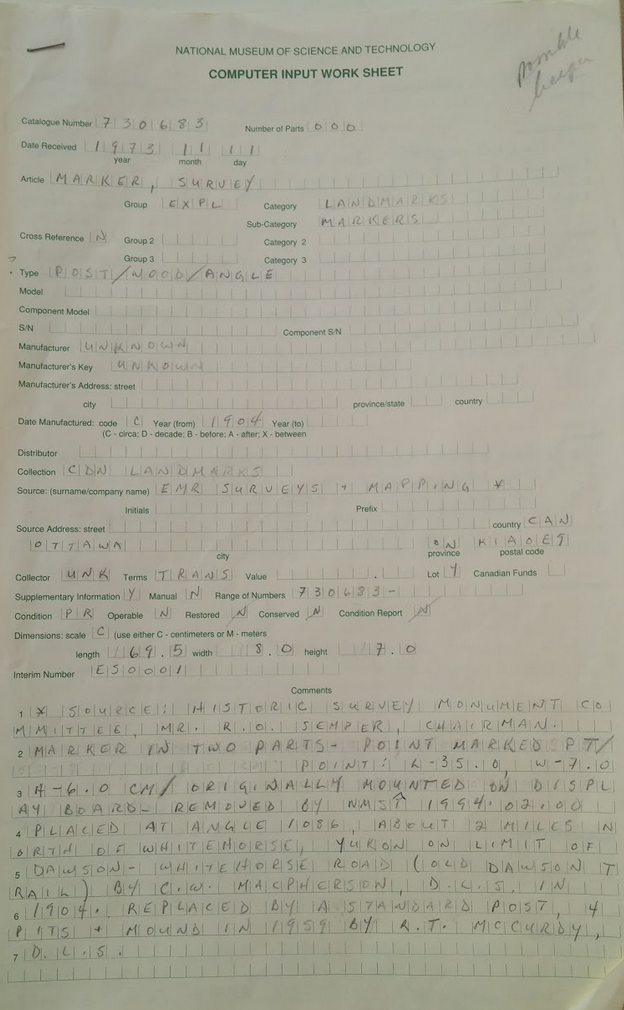 possible
NATIONAL MUSEUM OF SCIENCE AND TECHNOLOGY
COMPUTER INPUT WORK SHEET
Catalogue Number 730683 Number of Parts 000
Date Received 1973 11 11
year month day
Article MARKER, SURVEY
Group EXPL Category LANDMARKS
Sub-Category MARKERS
Cross Reference N Group 2 Category 2
Group 3 Category 3
? Type POST/WOOD/ANGLE
Model
Component Model
S/N Component S/N
Manufacturer UNKNOWN
Manufacturer's Key UNKOWN
Manufacturer's Address: street
city province/state country
Date Manufactured: code C Year (from) 1904 Year (to)
(C - circa; D - decade; B - before; A - after; X - between
Distributor
Collection CDN LANDMARKS
Source: (surname/company name) EMR SURVEYS + MAPPING *
Initials Prefix
Source Address: street country CAN
OTTAWA ON K1A0E9
city province postal code
Collector UNK Terms TRANS Value . Lot Y Canadian Funds
Supplementary Information Y Manual N Range of Numbers 730683-
Condition PR Operable N Restored N Conserved N Condition Report N
Dimensions: scale C (use either C - centimeters or M - meters
length 169.5 width 8.0 height 7.0
Interim Number ES0001
Comments
1 * SOURCE: HISTORIC SURVEY MONUMENT CO
MMITTEE, MR. R.O. SEMPER, CHAIRMAN.
2 MARKER IN TWO PARTS- POINT MARKED PT/
POINT: L-35.0, W-7.0
3 H-6.0 CM/ ORIGINALLY MOUNTED ON DISPL
AY BOARD- REMOVED BY NMST 1994.02.00
4 PLACED AT ANGLE 1086, ABOUT 2 MILES N
ORTH OF WHITEHORSE, YUKON ON LIMIT OF
5 DAWSON- WHITEHORSE ROAD (OLD DAWSON T
RAIL) BY C.W. MACPHERSON, D.L.S. IN
6 1904. REPLACED BY A STANDARD POST, 4
PITS + MOUND IN 1959 BY R.T. MCCURDY,
7 D.L.S.